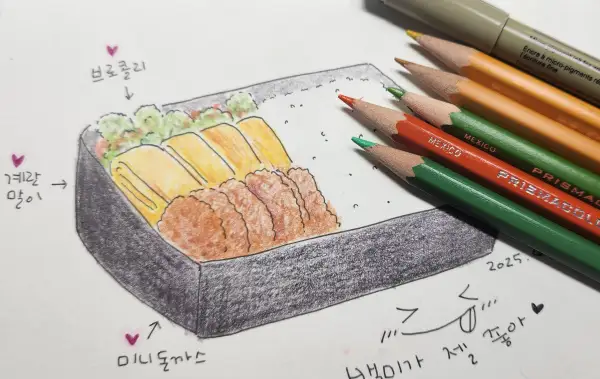 브로콜리
계란
말이
미니돈까스
2025.
백미가 제일 좋아
MEXICO
PRISMACOLO
MEXICO
PRISMA
Encre à micro-pigments